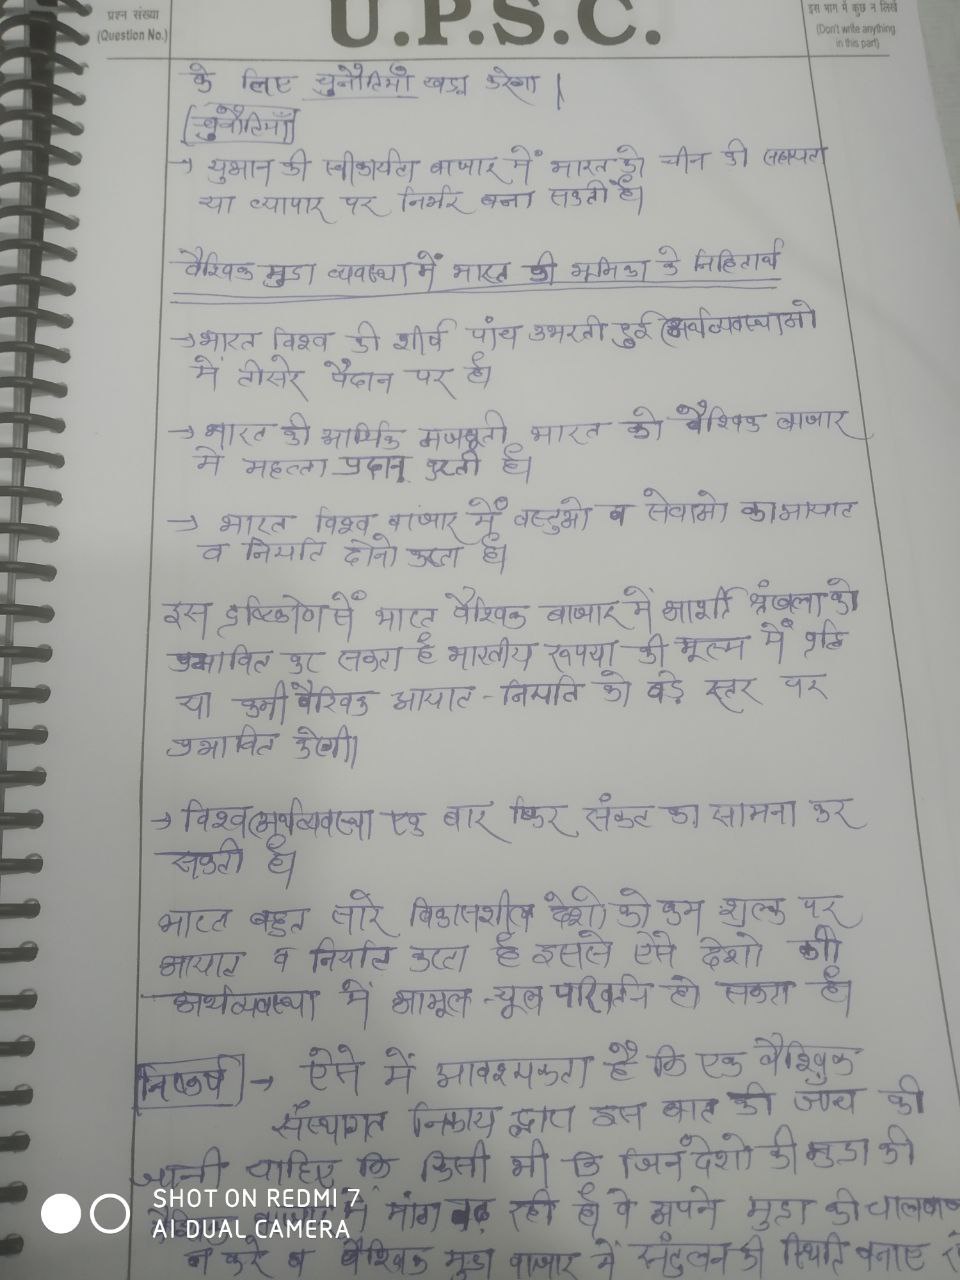 प्रश्न संख्या
(Question No.)
U.P.S.C.
इस भाग में कुछ न लिखें
(Don't write anything
in this part)
के लिए चुनौतियाँ खड़ा करेगा।
चुनौतियाँ
→ युआन की स्वीकार्यता बाजार में भारत को चीन की सहायता
या व्यापार पर निर्भर बना सकती है।
वैश्विक मुद्रा व्यवस्था में भारत की भूमिका के निहितार्थ
→ भारत विश्व की शीर्ष पांच उभरती हुई अर्थव्यवस्थाओ
में तीसरे पैदान पर है।
→ भारत की आर्थिक मजबूती भारत को वैश्विक बाजार
में महत्ता प्रदान करती है।
→ भारत विश्व बाजार में वस्तुओ व सेवाओ का आयात
व निर्यात दोनो करता है।
इस दृष्टिकोण से भारत वैश्विक बाजार में श्रंखला को
प्रभावित कर सकता है भारतीय रूपया की मूल्य में वृद्धि
या कमी वैश्विक आयात - निर्यात को बड़े स्तर पर
प्रभावित करेगी।
→ विश्व अर्थव्यवस्था एक बार फिर संकट का सामना कर
सकती है।
भारत बहुत सारे विकासशील देशो को कम शुल्क पर
आयात व निर्यात करता है इससे ऐसे देशो की
अर्थव्यवस्था में आमूल-चूल परिवर्तन हो सकता है।
निष्कर्ष → ऐसे में आवश्यकता है कि एक वैश्विक
संस्थागत निकाय द्वारा इस बात की जांच की
जानी चाहिए कि किसी भी कि जिन देशो की मुद्रा की
में मांग बढ़ रही है वे अपने मुद्रा की
न करे व वैश्विक मुद्रा बाजार में संतुलन की स्थिति बनाए
SHOT ON REDMI 7
AI DUAL CAMERA